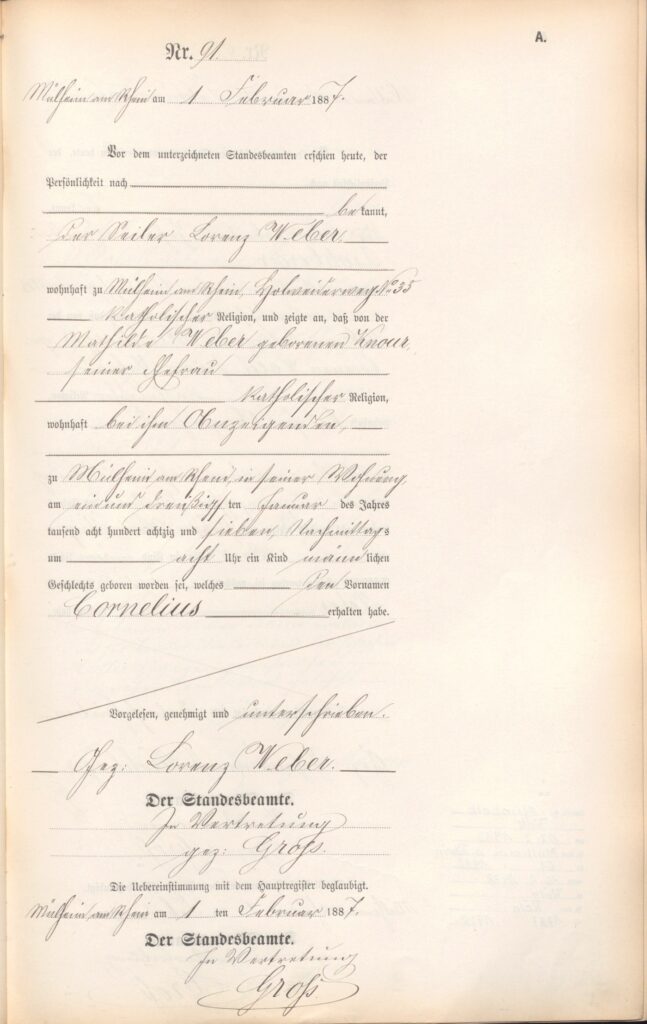 A.
Nr. 91.
Mülheim am Rhein am 1 Februar 1887.
Vor dem unterzeichneten Standesbeamten erschien heute, der
Persönlichkeit nach
bekannt,
der Seiler Lorenz Weber,
wohnhaft zu Mülheim am Rhein, Holweiderweg No 35
katholischer Religion, und zeigte an, daß von der
Mathilde Weber geborenen Knour,
seiner Ehefrau
katholischer Religion,
wohnhaft bei ihm Anzeigenden,
zu Mülheim am Rhein, in seiner Wohnung,
am ein und dreißigsten Januar des Jahres
tausend acht hundert achtzig und sieben, Nachmittags
um acht Uhr ein Kind männlichen
Geschlechts geboren worden sei, welches den Vornamen
Cornelius erhalten habe.
Vorgelesen, genehmigt und unterschrieben.
Gez: Lorenz Weber.
Der Standesbeamte.
In Vertretung
gez: Groß.
Die Uebereinstimmung mit dem Hauptregister beglaubigt.
Mülheim am Rhein am 1 ten Februar 1887.
Der Standesbeamte.
In Vertretung
Groß